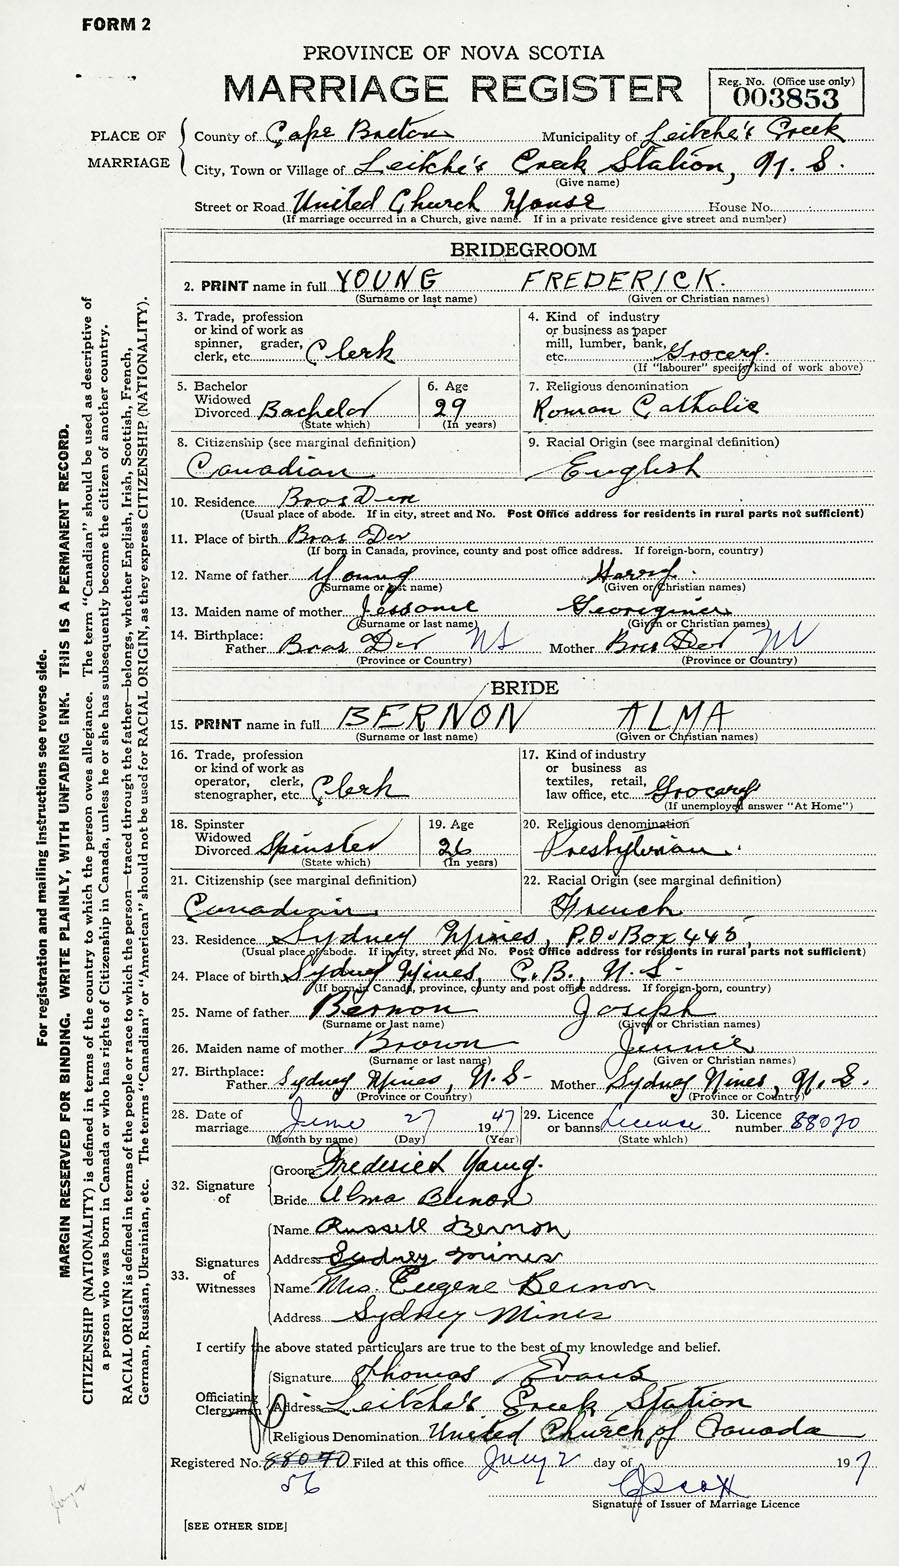 FORM 2
PROVINCE OF NOVA SCOTIA
MARRIAGE REGISTER
Reg. No. (Office use only)
003853
PLACE OF MARRIAGE
County of Cape Breton Municipality of Leitche's Creek
City, Town or Village of Leitche's Creek Station, N. S.
(Give name)
Street or Road United Church Manse House No.
(If marriage occurred in a Church, give name. If in a private residence give street and number)
BRIDEGROOM
2. PRINT name in full YOUNG FREDERICK.
(Surname or last name) (Given or Christian names)
3. Trade, profession or kind of work as spinner, grader, clerk, etc. Clerk
4. Kind of industry or business as paper mill, lumber, bank, etc. Grocery.
(If "labourer" specify kind of work above)
5. Bachelor Widowed Divorced Bachelor
(State which)
6. Age 29
(In years)
7. Religious denomination
Roman Catholic
8. Citizenship (see marginal definition)
Canadian
9. Racial Origin (see marginal definition)
English
10. Residence Bras Dor
(Usual place of abode. If in city, street and No. Post Office address for residents in rural parts not sufficient)
11. Place of birth Bras Dor
(If born in Canada, province, county and post office address. If foreign-born, country)
12. Name of father Young Harry.
(Surname or last name) (Given or Christian names)
13. Maiden name of mother Jessome
(Surname or last name) (Given or Christian names)
14. Birthplace: Father Bras Dor NS Mother Bras Dor
(Province or Country) (Province or Country)
BRIDE
15. PRINT name in full BERNON ALMA
(Surname or last name) (Given or Christian names)
16. Trade, profession or kind of work as operator, clerk, stenographer, etc. Clerk
17. Kind of industry or business as textiles, retail, law office, etc. Grocery
(If unemployed answer "At Home")
18. Spinster Widowed Divorced Spinster
(State which)
19. Age 26
(In years)
20. Religious denomination
Presbyterian.
21. Citizenship (see marginal definition)
Canadian
22. Racial Origin (see marginal definition)
French
23. Residence Sydney Mines, P.O. Box 443,
(Usual place of abode. If in city, street and No. Post Office address for residents in rural parts not sufficient)
24. Place of birth Sydney Mines, C.B., N.S.
(If born in Canada, province, county and post office address. If foreign-born, country)
25. Name of father Bernon Joseph
(Surname or last name) (Given or Christian names)
26. Maiden name of mother Brown Jennie
(Surname or last name) (Given or Christian names)
27. Birthplace: Father Sydney Mines, N.S. Mother Sydney Mines, N.S.
(Province or Country) (Province or Country)
28. Date of marriage June 27 1947
(Month by name) (Day) (Year)
29. Licence or banns License
(State which)
30. Licence number 88070
32. Signature of
Groom Frederick Young.
Bride Alma Bernon
33. Signatures of Witnesses
Name Russell Bernon
Address Sydney Mines
Name Mrs. Eugene Bernon
Address Sydney Mines
I certify the above stated particulars are true to the best of my knowledge and belief.
Officiating Clergyman
Signature Thomas Evans
Address Leitche's Creek Station
Religious Denomination United Church of Canada
Registered No. 88070 Filed at this office July 2 day of 197
56
Signature of Issuer of Marriage Licence
[SEE OTHER SIDE]
For registration and mailing instructions see reverse side.
MARGIN RESERVED FOR BINDING. WRITE PLAINLY, WITH UNFADING INK. THIS IS A PERMANENT RECORD.
CITIZENSHIP (NATIONALITY) is defined in terms of the country to which the person owes allegiance. The term "Canadian" should be used as descriptive of
a person who was born in Canada or who has rights of Citizenship in Canada, unless he or she has subsequently become the citizen of another country.
RACIAL ORIGIN is defined in terms of the people or race to which the person—traced through the father—belongs, whether English, Irish, Scottish, French,
German, Russian, Ukrainian, etc. The terms "Canadian" or "American" should not be used for RACIAL ORIGIN, as they express CITIZENSHIP (NATIONALITY).